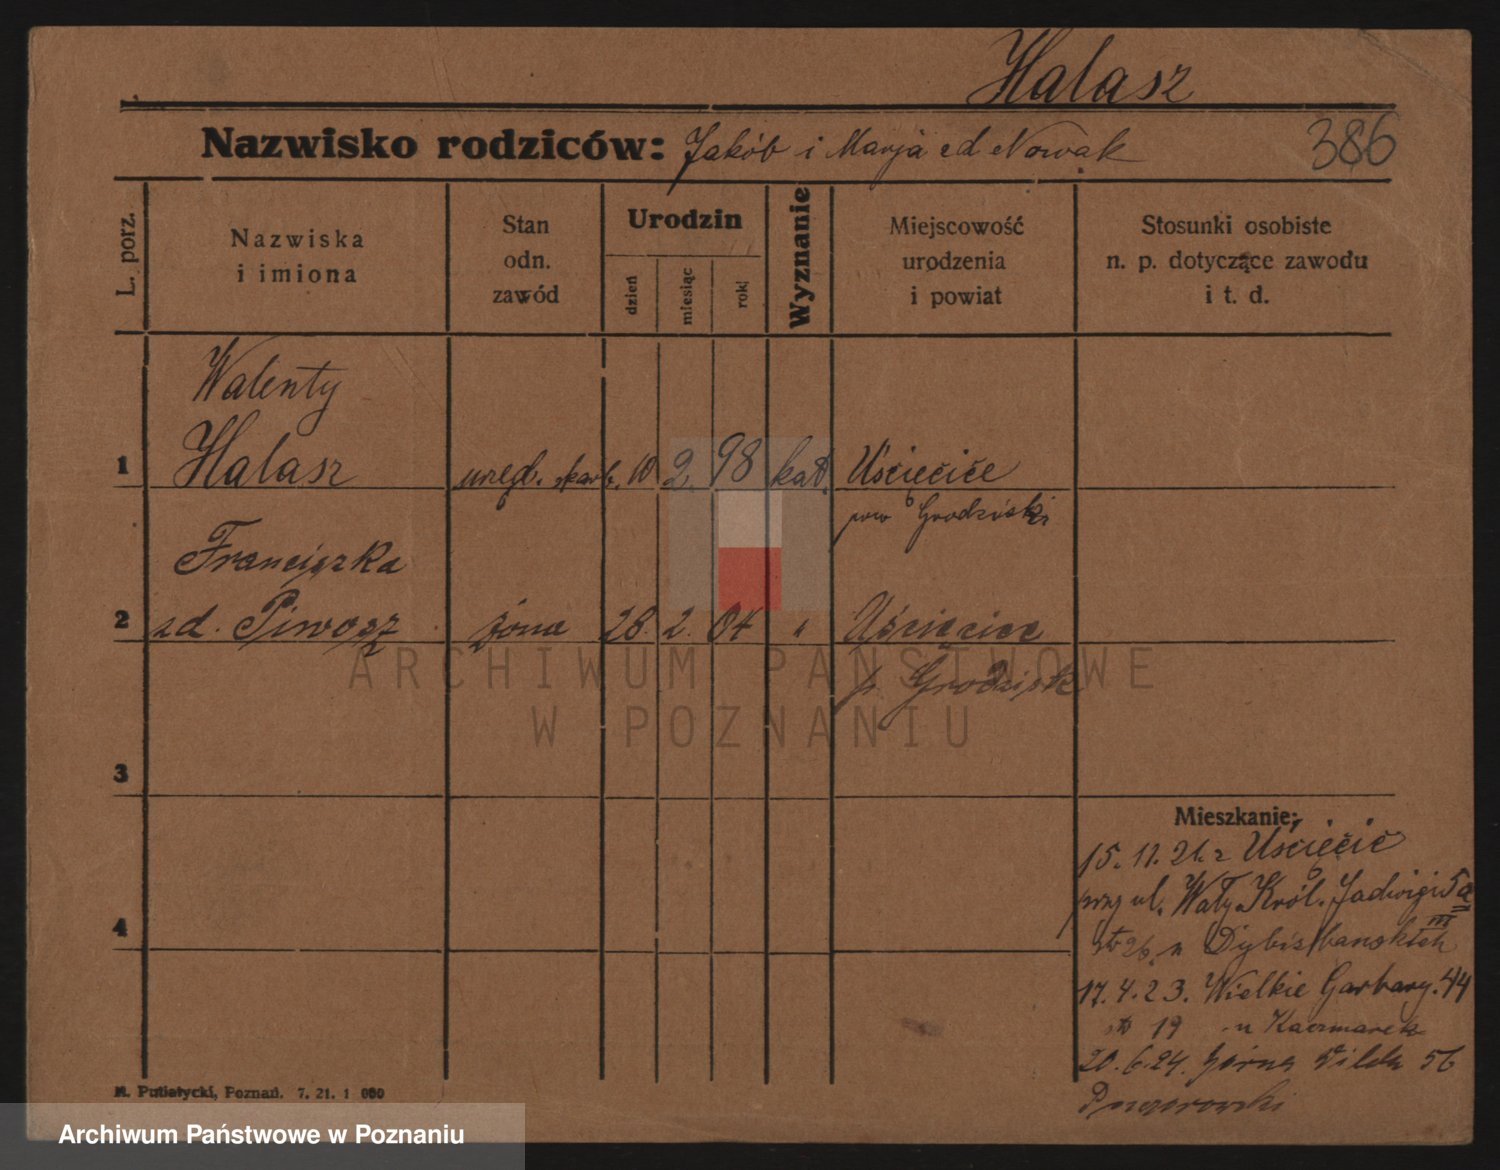 Halasz
Nazwisko rodziców: Jakób i Marja zd Nowak
386
L. porz.
Nazwiska
i imiona
Stan
odn.
zawód
Urodzin
dzień
miesiąc
rok
Wyznanie
Miejscowość
urodzenia
i powiat
Stosunki osobiste
n. p. dotyczące zawodu
i t. d.
Walenty
1 Halasz urzęd. skarb. 10 2. 98 kat. Uścięcice
pow Grodziski
Franciszka
2 zd. Piwosz żona 28. 2. 04 " Uścięcice
p. Grodzisk
ARCHIWUM PAŃSTWOWE
W POZNANIU
3
4
Mieszkanie:
15. 11. 21. z Uścięcic
przy ul. Wały Król. Jadwigi 5a
III
26. u
17. 4. 23. Wielkie Garbary. 44
19 u Kaczmarek
20. 6. 24. Górna Wilda 56
M. Putiatycki, Poznań. 7. 21. 1 000
Archiwum Państwowe w Poznaniu